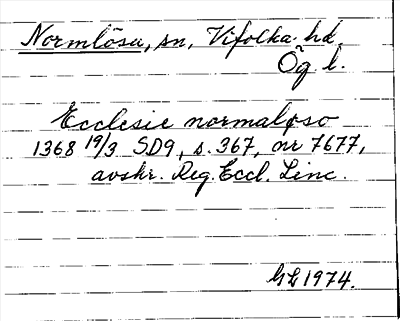 Normlösa, sn, Vifolka hd
Ög l.
Ecclesie normaløso
1368 19/3 SD9, s. 367, nr 7677,
avskr. Reg. Eccl. Linc.
GL 1974.